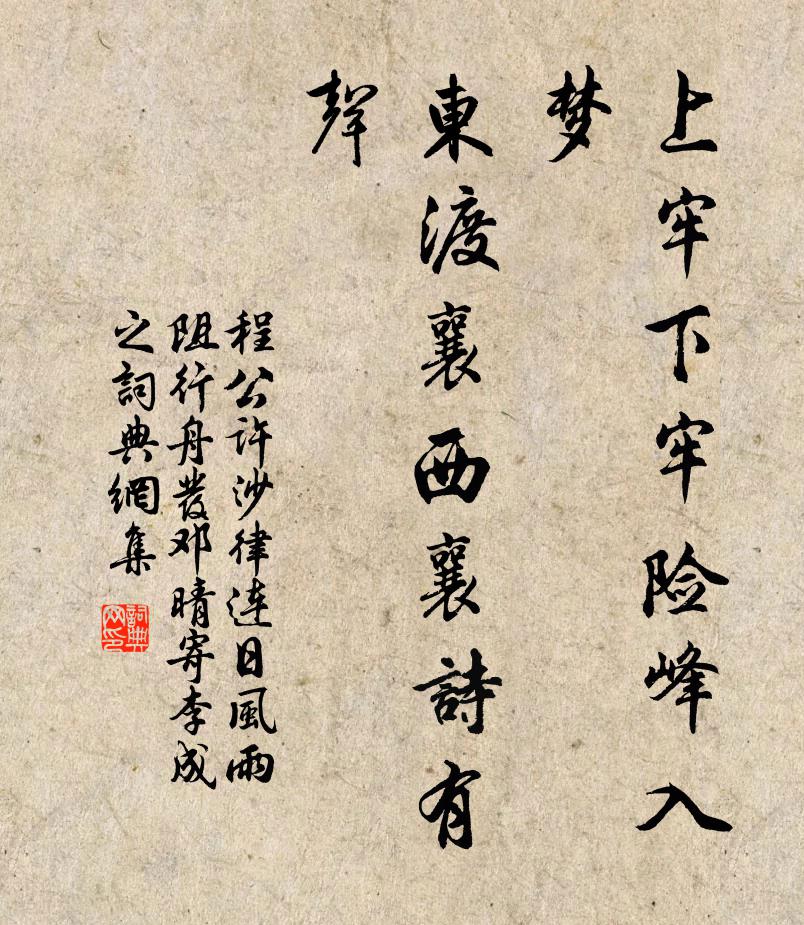 上牢下牢险峰入
梦
東渡襄西襄詩有
聲
程公許沙律連日風雨
阻行舟發邓晴寄李成
之詞典網集
詞典
网印